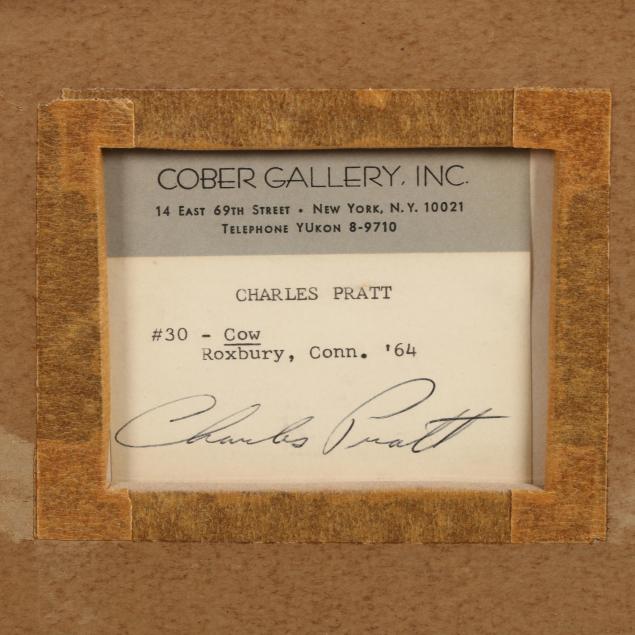 COBER GALLERY, INC.
14 EAST 69TH STREET • NEW YORK, N.Y. 10021
TELEPHONE YUKON 8-9710
CHARLES PRATT
#30 - Cow
Roxbury, Conn. '64
Charles Pratt